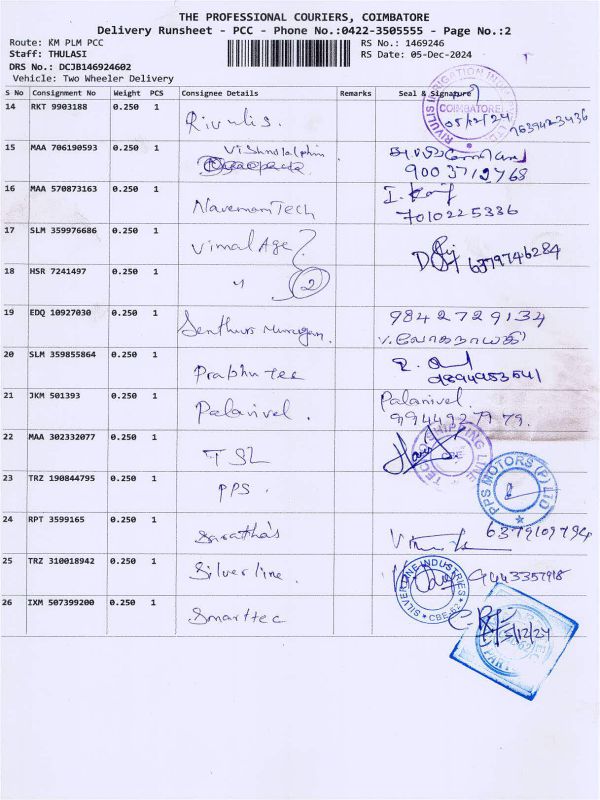 THE PROFESSIONAL COURIERS, COIMBATORE
Delivery Runsheet - PCC - Phone No.:0422-3505555 - Page No.:2
Route: KM PLM PCC
RS No.: 1469246
Staff: THULASI
RS Date: 05-Dec-2024
DRS No.: DCJB146924602
Vehicle: Two Wheeler Delivery
S No Consignment No Weight PCS Consignee Details Remarks Seal & Signature
14 RKT 9903188 0.250 1 Rivulis. RIVULIS IRRIGATION COIMBATORE 05/12/24 7639423436
15 MAA 706190593 0.250 1 9003719768
16 MAA 570873163 0.250 1 NavemomTech 7010225336
17 SLM 359976686 0.250 1 Vimal Age 6379746284
18 HSR 7241497 0.250 1 " 2
19 EDQ 10927030 0.250 1 Senthur Murugan. 9842729134
V. லோகநாயகி
20 SLM 359855864 0.250 1 Prabhu Tec 9894953541
21 JKM 501393 0.250 1 Palanivel. Palanivel.
9944927979.
22 MAA 302332077 0.250 1 TSL SHIPPING LINE CBE
23 TRZ 190844795 0.250 1 PPS. PPS MOTORS (P) LTD
24 RPT 3599165 0.250 1 Saratha's 6379109794
25 TRZ 310018942 0.250 1 Silverline. SILVERLINE INDUSTRIES CBE-62 9443357918
26 IXM 507399200 0.250 1 Smarttec 5/12/24